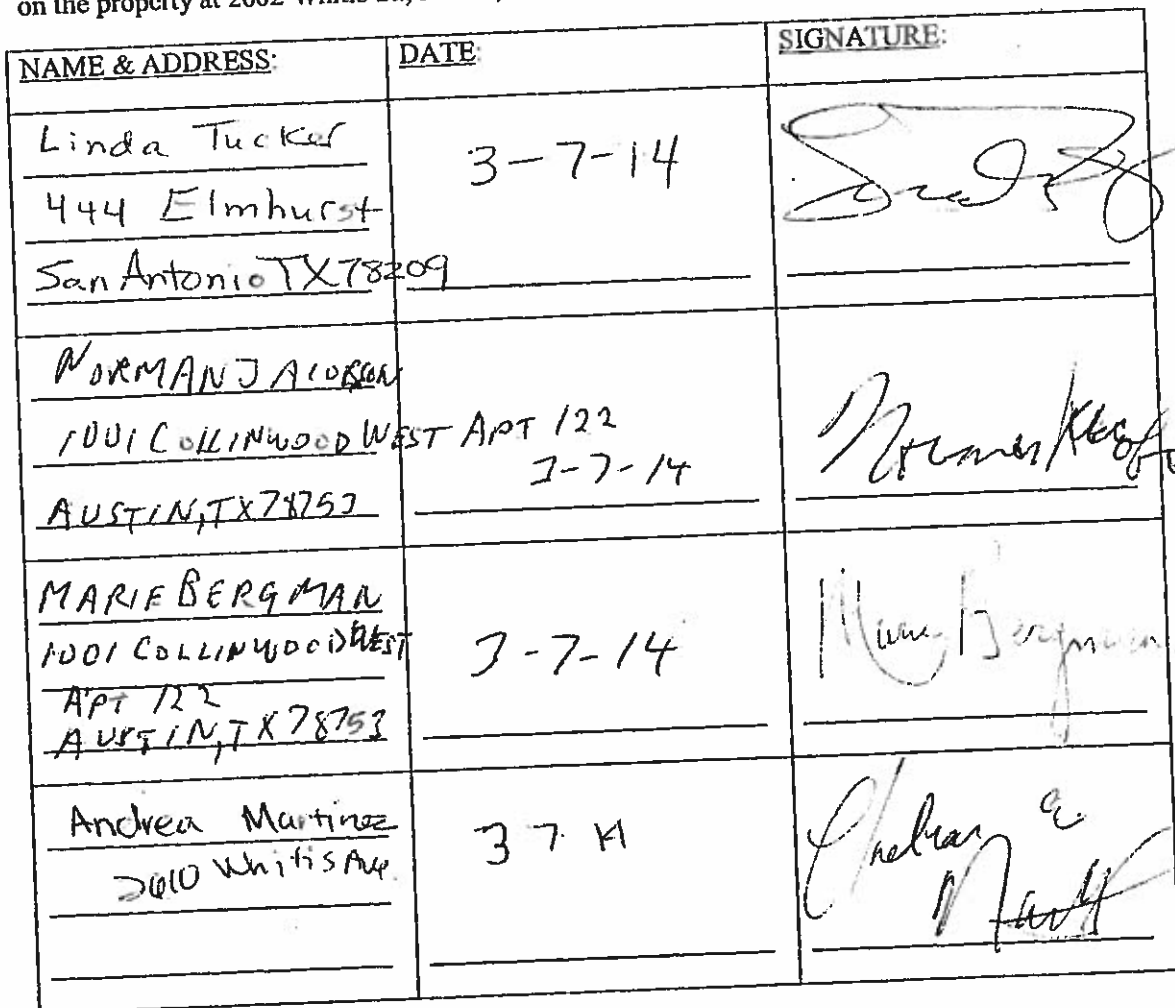 on the property at 2002 Whitis
NAME & ADDRESS: DATE: SIGNATURE:
Linda Tucker
444 Elmhurst
San Antonio TX 78209
3-7-14
NORMAN JACOBSON
1001 COLLINWOOD WEST APT 122
AUSTIN, TX 78753
3-7-14
MARIE BERGMAN
1001 COLLINWOOD WEST
APT 122
AUSTIN, TX 78753
3-7-14
Marie Bergman
Andrea Martinez
2610 Whitis Ave.
3 7 14